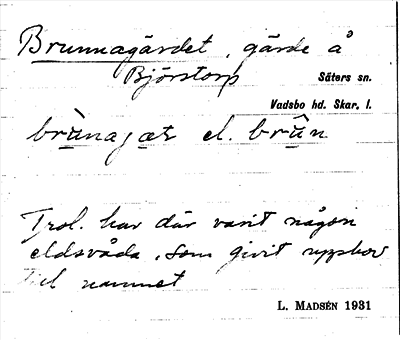 Brunnagärdet, gärde å
Björstorp Säters sn.
Vadsbo hd. Skar. l.
brùnagæṭ el. brûn
Trol. har där varit någon
eldsvåda, som givit upphov
till namnet
L. Madsén 1931